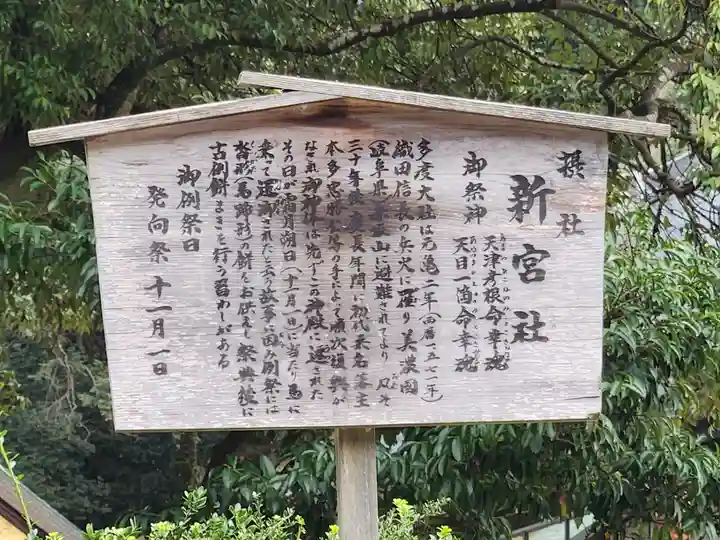 摂社
新宮社
御祭神 天津彦根命幸魂
天目一箇命幸魂
多度大社は元亀二年(西暦一五七一年)
織田信長の兵火に罹り美濃国
(岐阜県 山に避難されてより 凡そ
三十年後 慶長年間に初代桑名藩主
本多忠勝 の手によって順次復興が
なされ御神体は先ずこの神殿に遷された
その日が霜月朔日(十一月一日)に当たり馬に
乗て還御されたと云う故事に因み例祭には
沓形馬蹄形の餅をお供えし祭典後に
古例餅まきを行う習わしがある
御例祭日
発向祭 十一月一日